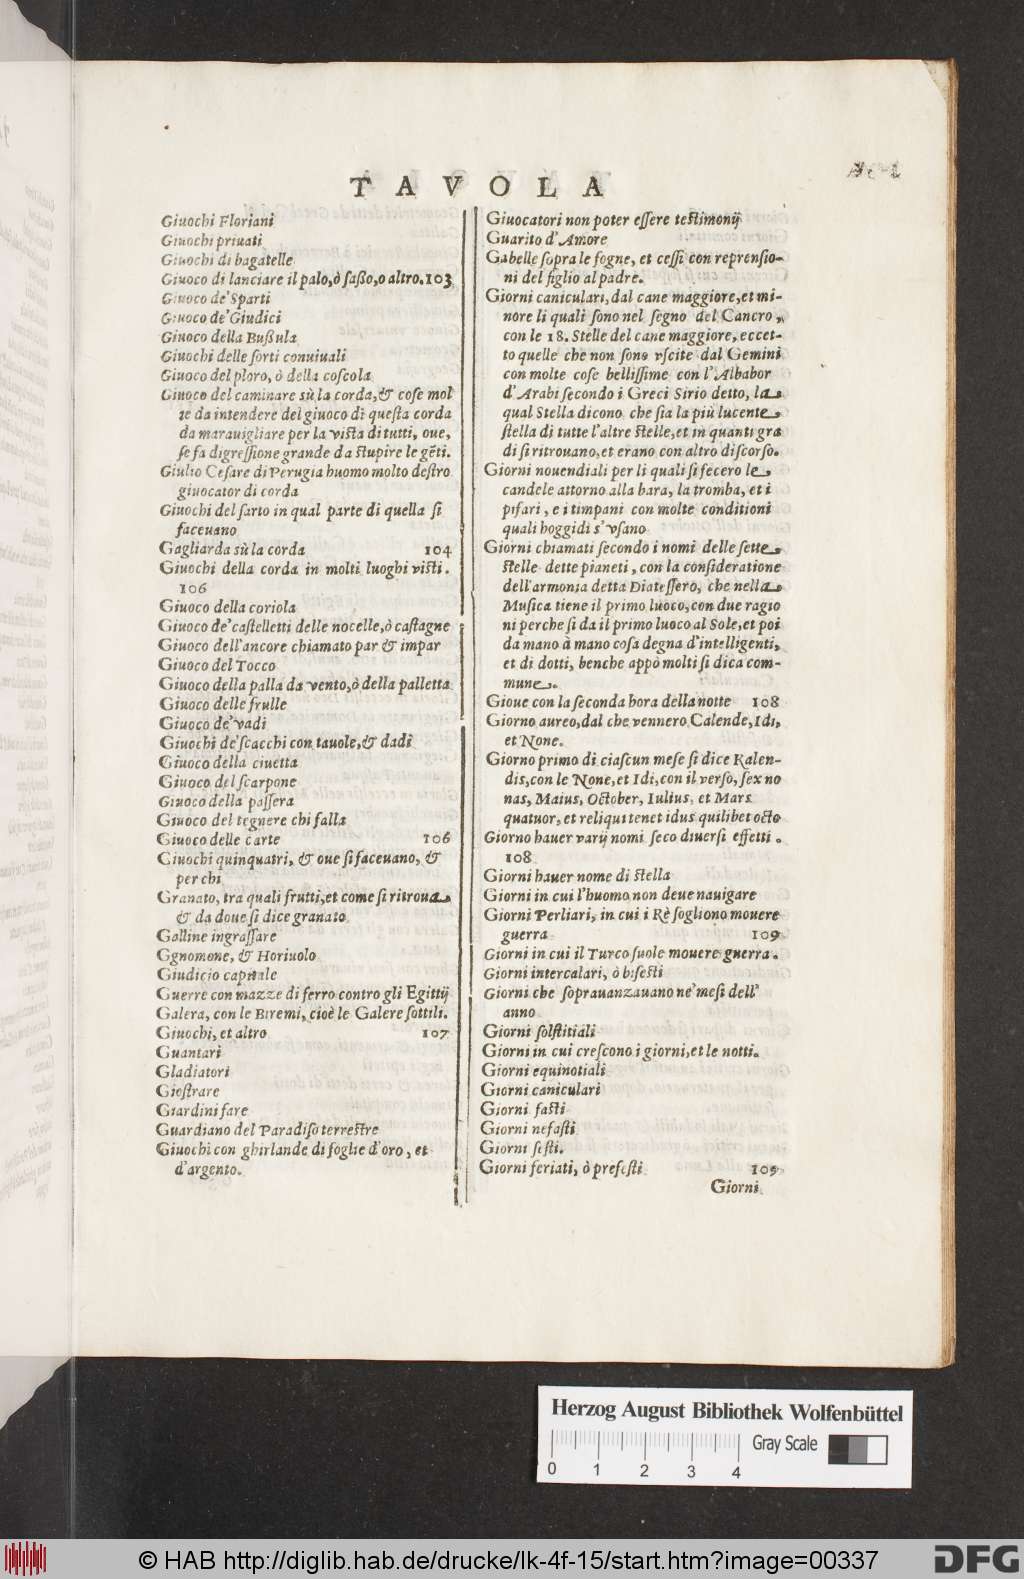 TAVOLA
Giuochi Floriani
Giuochi priuati
Giuochi di bagatelle
Giuoco di lanciare il palo,ò saßo,o altro.103
Giuoco de' Sparti
Giuoco de' Giudici
Giuoco della Bußula
Giuochi delle sorti conuiuali
Giuoco del ploro, ò della coscola
Giuoco del caminare sù la corda,& cose mol
te da intendere del giuoco di questa corda
da marauigliare per la vista di tutti, oue,
se fa digressione grande da stupire le gẽti.
Giulio Cesare di Perugia huomo molto destro
giuocator di corda
Giuochi del sarto in qual parte di quella si
faceuano
Gagliarda sù la corda 104
Giuochi della corda in molti luoghi visti.
106
Giuoco della coriola
Giuoco de' castelletti delle nocelle,ò castagne
Giuoco dell'ancore chiamato par & impar
Giuoco del Tocco
Giuoco della palla da vento,ò della palletta
Giuoco delle frulle
Giuoco de' vadi
Giuochi de' scacchi con tauole,& dadi
Giuoco della ciuetta
Giuoco del scarpone
Giuoco della passera
Giuoco del tegnere chi falla
Giuoco delle carte 106
Giuochi quinquatri, & oue si faceuano, &
per chi
Granato, tra quali frutti,et come si ritroua
& da doue si dice granato
Galline ingrassare
Ggnomone, & Horiuolo
Giudicio capitale
Guerre con mazze di ferro contro gli Egittij
Galera, con le Biremi, cioè le Galere sottili.
Giuochi, et altro 107
Guantari
Gladiatori
Giostrare
Giardini fare
Guardiano del Paradiso terrestre
Giuochi con ghirlande di foglie d'oro, et
d'argento.
Giuocatori non poter essere testimonij
Guarito d'Amore
Gabelle sopra le fogne, et cessi con reprensio-
ni del figlio al padre.
Giorni caniculari,dal cane maggiore,et mi-
nore li quali sono nel segno del Cancro,
con le 18. Stelle del cane maggiore, eccet-
to quelle che non sono vscite dal Gemini
con molte cose bellissime con l'Albabor
d'Arabi secondo i Greci Sirio detto, la
qual Stella dicono che sia la più lucente
stella di tutte l'altre stelle,et in quanti gra
di si ritrouano,et erano con altro discorso.
Giorni nouendiali per li quali si fecero le
candele attorno alla bara, la tromba, et i
pifari, e i timpani con molte conditioni
quali hoggidi s'vsano
Giorni chiamati secondo i nomi delle sette
stelle dette pianeti, con la consideratione
dell'armonia detta Diatessero, che nella
Musica tiene il primo luoco,con due ragio
ni perche si da il primo luoco al Sole,et poi
da mano à mano cosa degna d'intelligenti,
et di dotti, benche appò molti si dica com-
mune.
Gioue con la seconda hora della notte 108
Giorno aureo,dal che vennero Calende,Idi,
et None.
Giorno primo di ciascun mese si dice Kalen-
dis,con le None,et Idi,con il verso, sex no
nas, Maius, October, Iulius, et Mars
quatuor, et reliqui tenet idus quilibet octo
Giorno hauer varij nomi seco diuersi effetti.
108
Giorni hauer nome di stella
Giorni in cui l'huomo non deue nauigare
Giorni Perliari, in cui i Rè sogliono mouere
guerra 109
Giorni in cui il Turco suole mouere guerra.
Giorni intercalari, ò bisesti
Giorni che soprauanzauano ne' mesi dell'
anno
Giorni solstitiali
Giorni in cui crescono i giorni,et le notti.
Giorni equinotiali
Giorni caniculari
Giorni fasti
Giorni nefasti
Giorni festi.
Giorni feriati, ò profesti 109
Giorni
Herzog August Bibliothek Wolfenbüttel
Gray Scale
0 1 2 3 4
© HAB http://diglib.hab.de/drucke/lk-4f-15/start.htm?image=00337
DFG